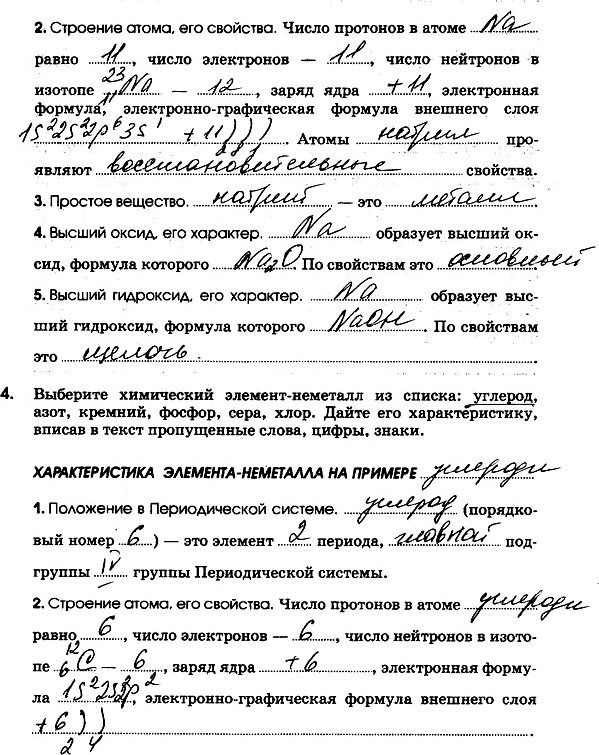 2. Строение атома, его свойства. Число протонов в атоме Na
равно 11, число электронов — 11, число нейтронов в
изотопе ²³₁₁Na — 12, заряд ядра +11, электронная
формула, электронно-графическая формула внешнего слоя
1s²2s²2p⁶3s¹ +11))). Атомы натрия про-
2 8 1
являют восстановительные свойства.
3. Простое вещество. натрий — это металл.
4. Высший оксид, его характер. Na образует высший ок-
сид, формула которого Na₂O. По свойствам это основный
5. Высший гидроксид, его характер. Na образует выс-
ший гидроксид, формула которого NaOH. По свойствам
это щелочь.
4. Выберите химический элемент-неметалл из списка: углерод,
азот, кремний, фосфор, сера, хлор. Дайте его характеристику,
вписав в текст пропущенные слова, цифры, знаки.
ХАРАКТЕРИСТИКА ЭЛЕМЕНТА-НЕМЕТАЛЛА НА ПРИМЕРЕ углерода
1. Положение в Периодической системе. углерод (порядко-
вый номер 6) — это элемент 2 периода, главной под-
группы IV группы Периодической системы.
2. Строение атома, его свойства. Число протонов в атоме углерода
равно 6, число электронов — 6, число нейтронов в изото-
пе ¹²₆C — 6, заряд ядра +6, электронная форму-
ла 1s²2s²2p², электронно-графическая формула внешнего слоя
+6)).
2 4